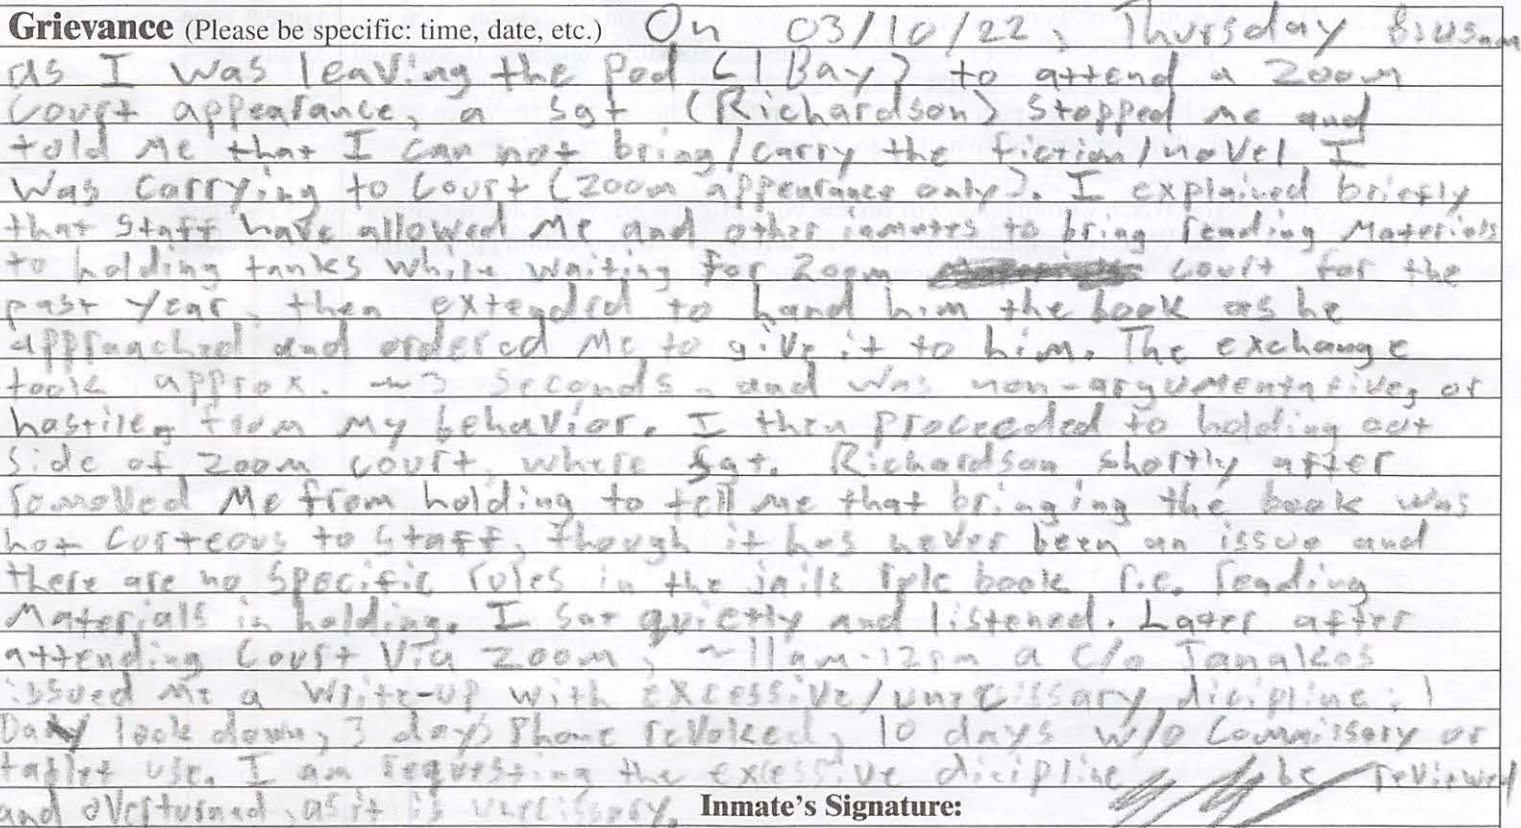 Grievance (Please be specific: time, date, etc.) On 03/10/22, Thursday
as I was leaving the Pod (1 Bay) to attend a zoom
Court appearance, a Sgt (Richardson) stopped me and
told me that I can not bring/carry the fiction/novel I
was carrying to Court (zoom appearance only). I explained briefly
that staff have allowed me and other inmates to bring reading materials
to holding tanks while waiting for zoom court for the
past year, then extended to hand him the book as he
approached and ordered me to give it to him. The exchange
took approx. ~3 seconds, and was non-argumentative, or
hostile, from my behavior. I then proceeded to holding out
side of zoom court, where Sgt. Richardson shortly after
removed me from holding to tell me that bringing the book was
not curteous to staff, though it has never been an issue and
there are no specific rules in the jails rule book r.e. reading
materials in holding. I sat quietly and listened. Later after
attending Court via zoom, ~11am-12pm a C/o
issued me a write-up with excessive/unecissary dicipline: 1
Day lock down, 3 day phone revoked, 10 days w/o Commissary or
tablet use. I am requesting the excessive dicipline be reviewed
and overturned, as it is unecissary. Inmate's Signature: